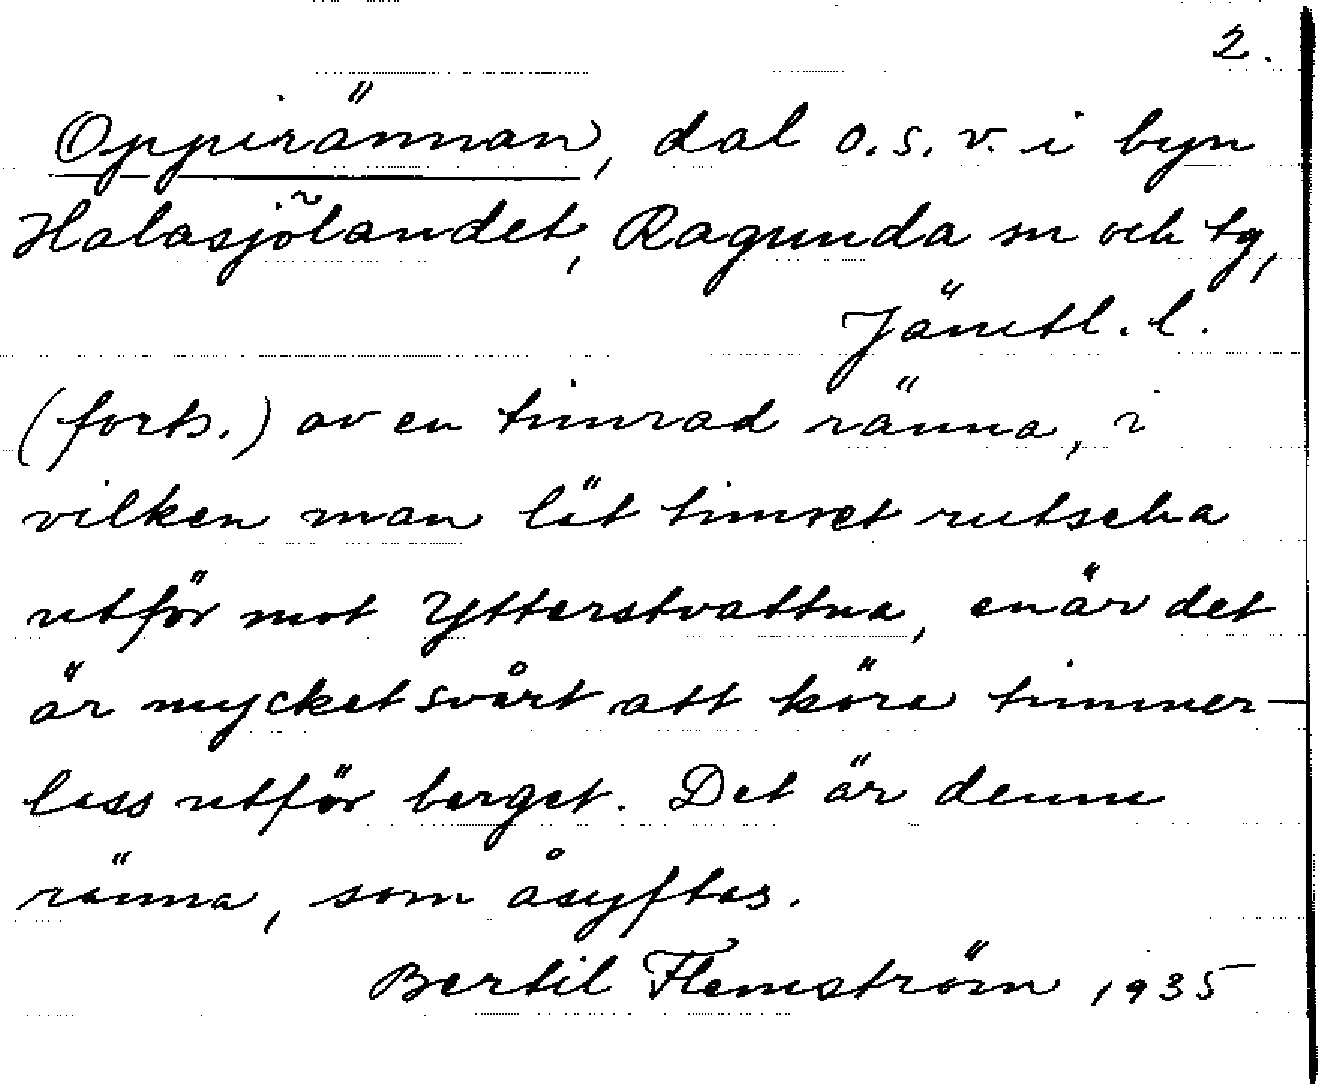 2.
Oppirännan, dal o.s.v. i byn
Halasjölandet, Ragunda sn och tg,
Jämtl. l.
(forts.) av en timrad ränna, i
vilken man lät timret rutscha
utför mot Ytterstvattna, enär det
är mycket svårt att köra timmer-
lass utför berget. Det är denna
ränna, som åsyftas.
Bertil Flemström 1935